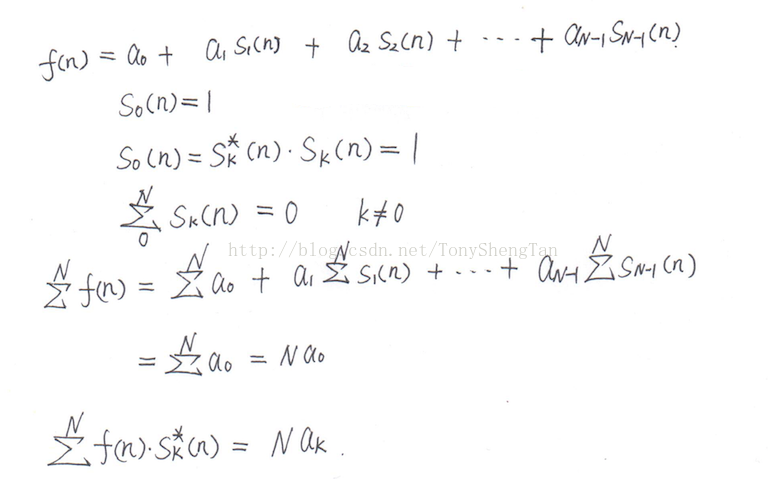 f(n) = a₀ + a₁ S₁(n) + a₂ S₂(n) + ⋯ + a_{N-1} S_{N-1}(n)
S₀(n) = 1
S₀(n) = S_k^*(n) · S_k(n) = 1
∑_0^N S_k(n) = 0 k≠0
http://blog.csdn.net/TonyShengTan
∑^N f(n) = ∑^N a₀ + a₁ ∑^N S₁(n) + ⋯ + a_{N-1} ∑^N S_{N-1}(n)
= ∑^N a₀ = N a₀
∑^N f(n) · S_k^*(n) = N a_k .